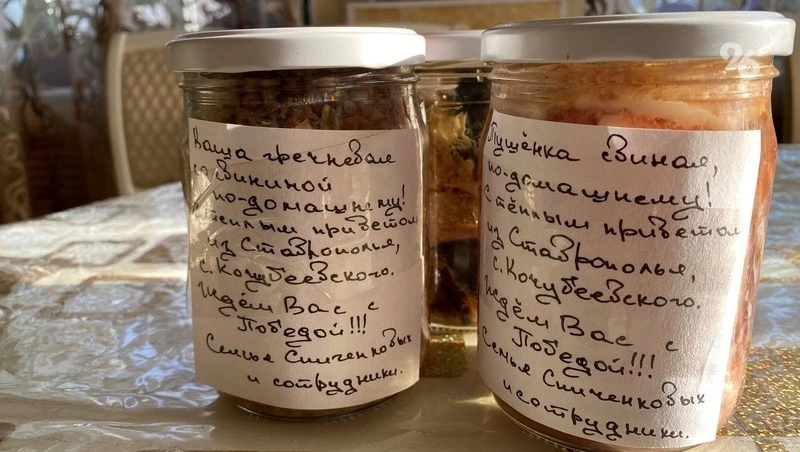 Каша гречневая
со свининой
по-домашнему!
С тёплым приветом
из Ставрополья,
с. Кочубеевского.
Ждём Вас с
Победой!!!
Семья Спиченковых
и сотрудники.
Тушёнка свиная,
по-домашнему!
С тёплым приветом
из Ставрополья,
с. Кочубеевского.
Ждём Вас с
Победой!!!
Семья Спиченковых
и сотрудники.
26